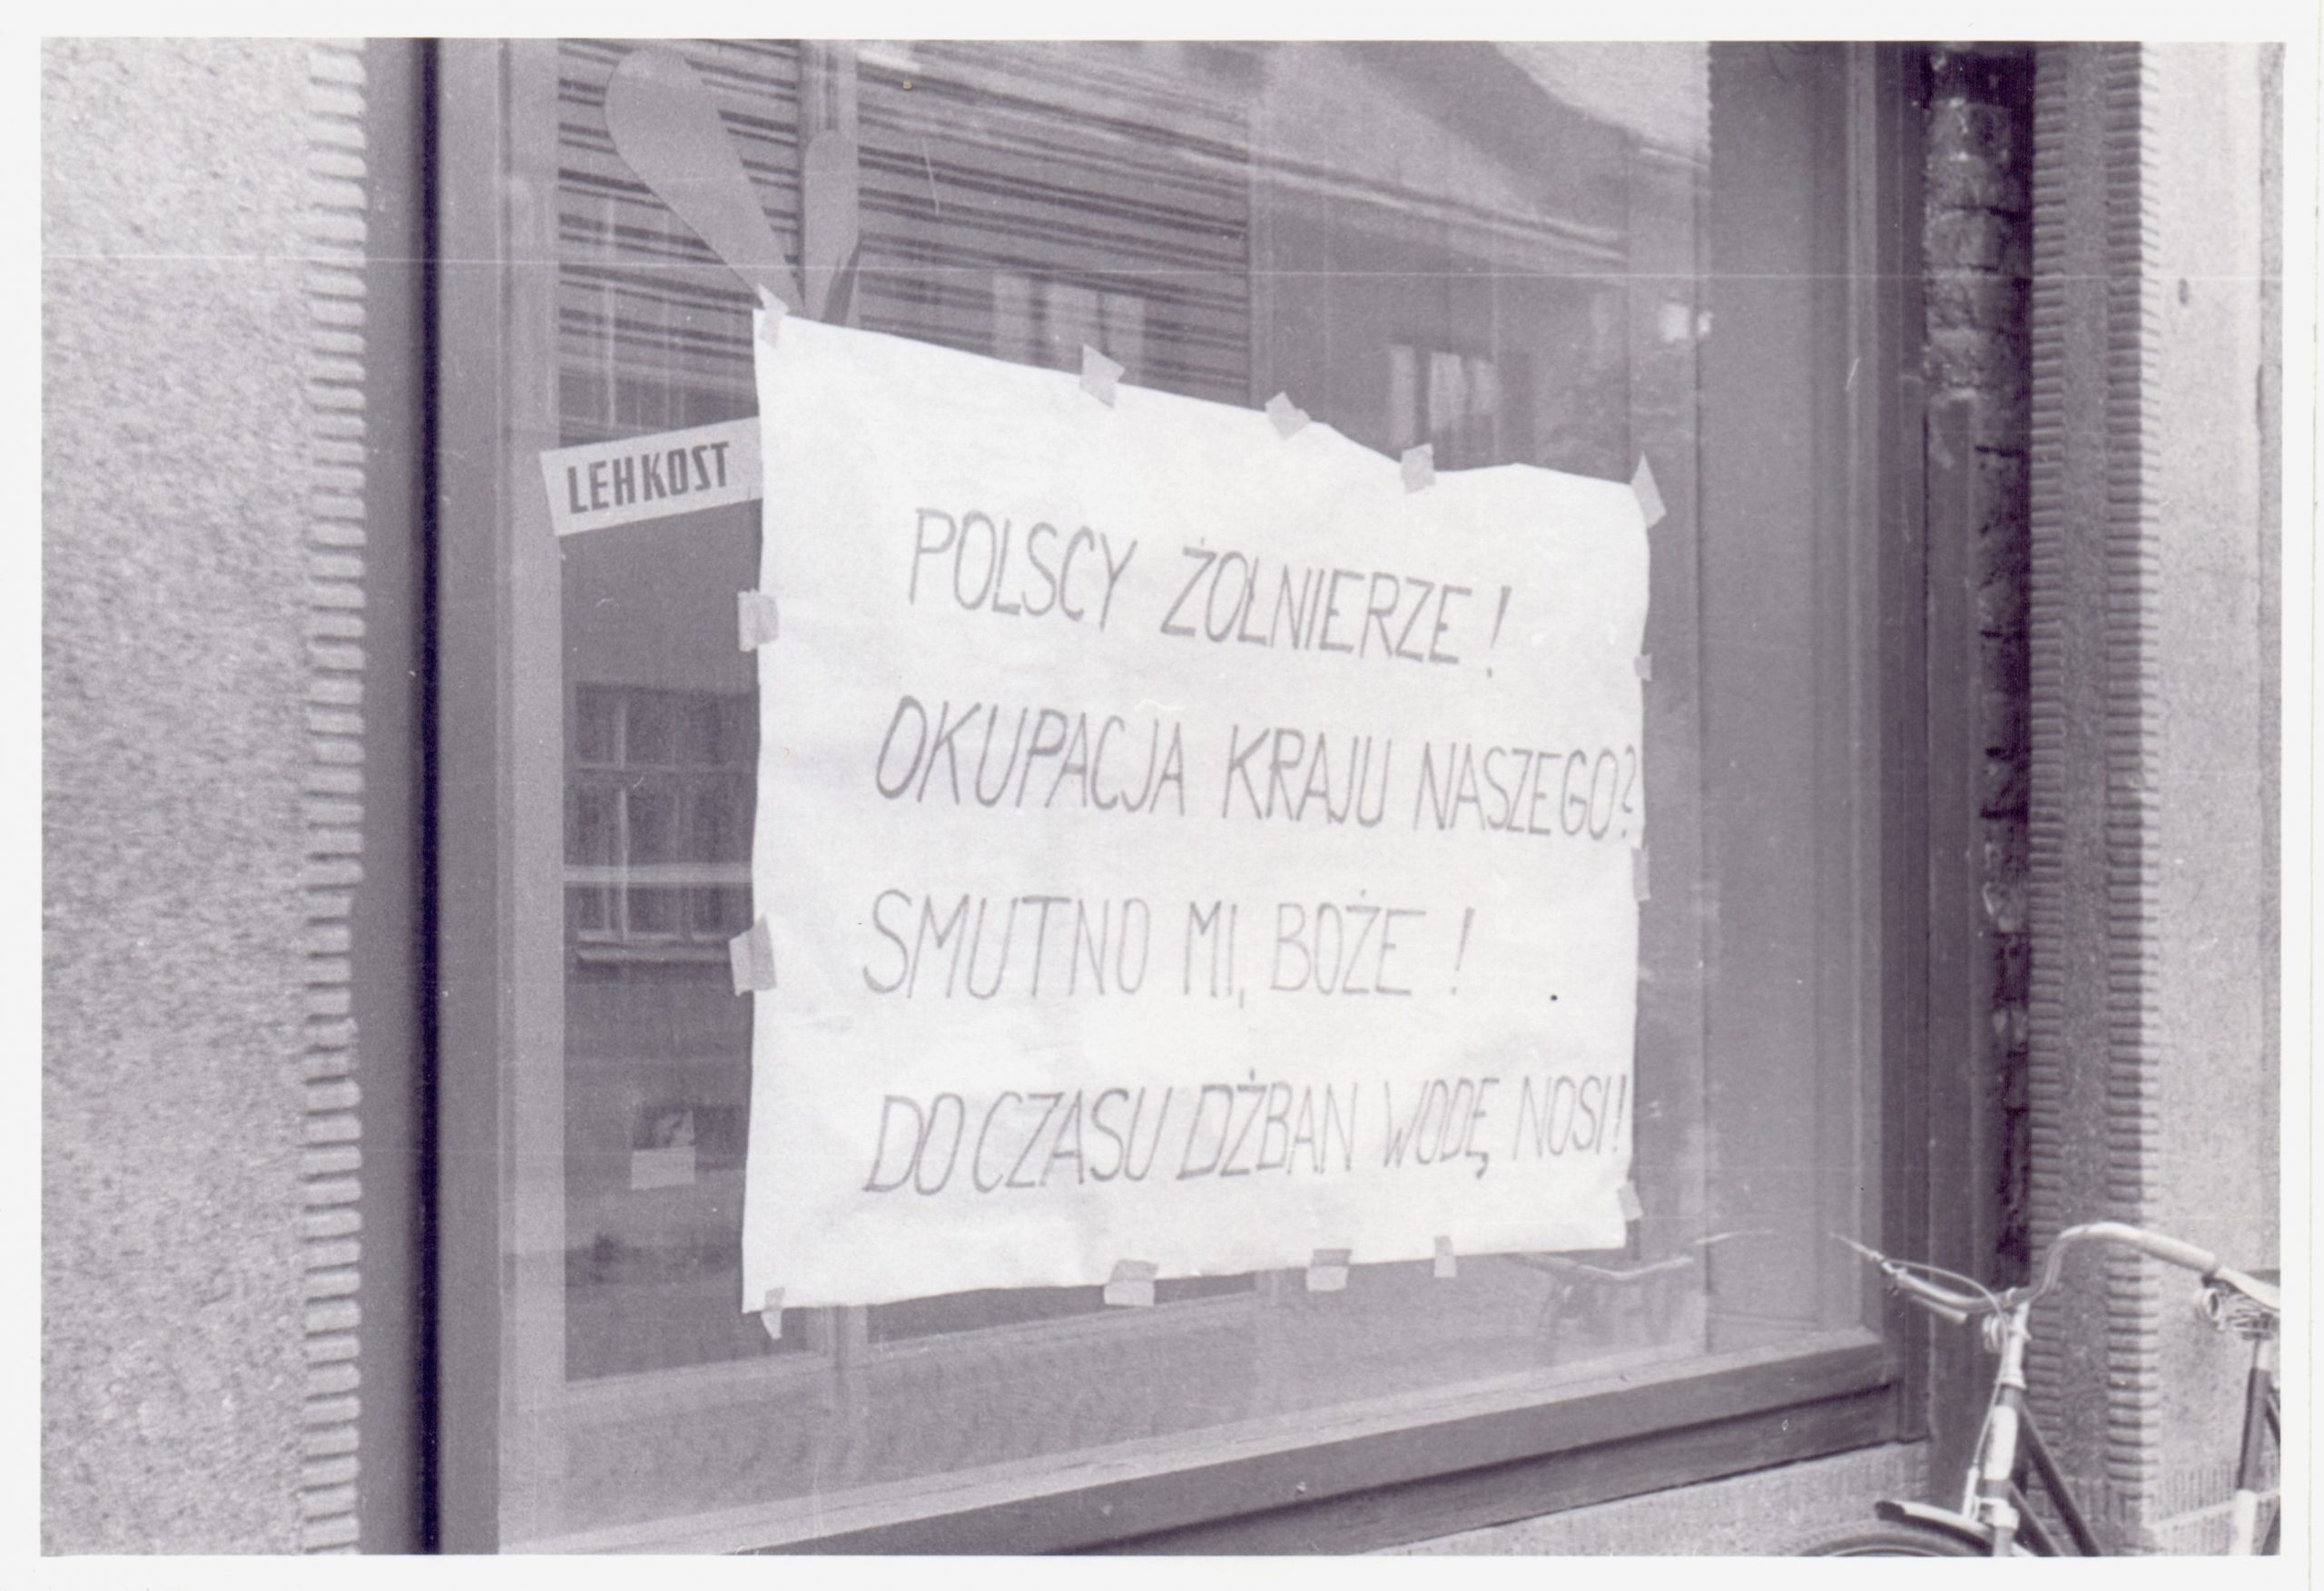 LEHKOST
POLSCY ŻOLNIERZE!
OKUPACJA KRAJU NASZEGO?
SMUTNO MI, BOŻE!
DO CZASU DŻBAN WODĘ NOSI!